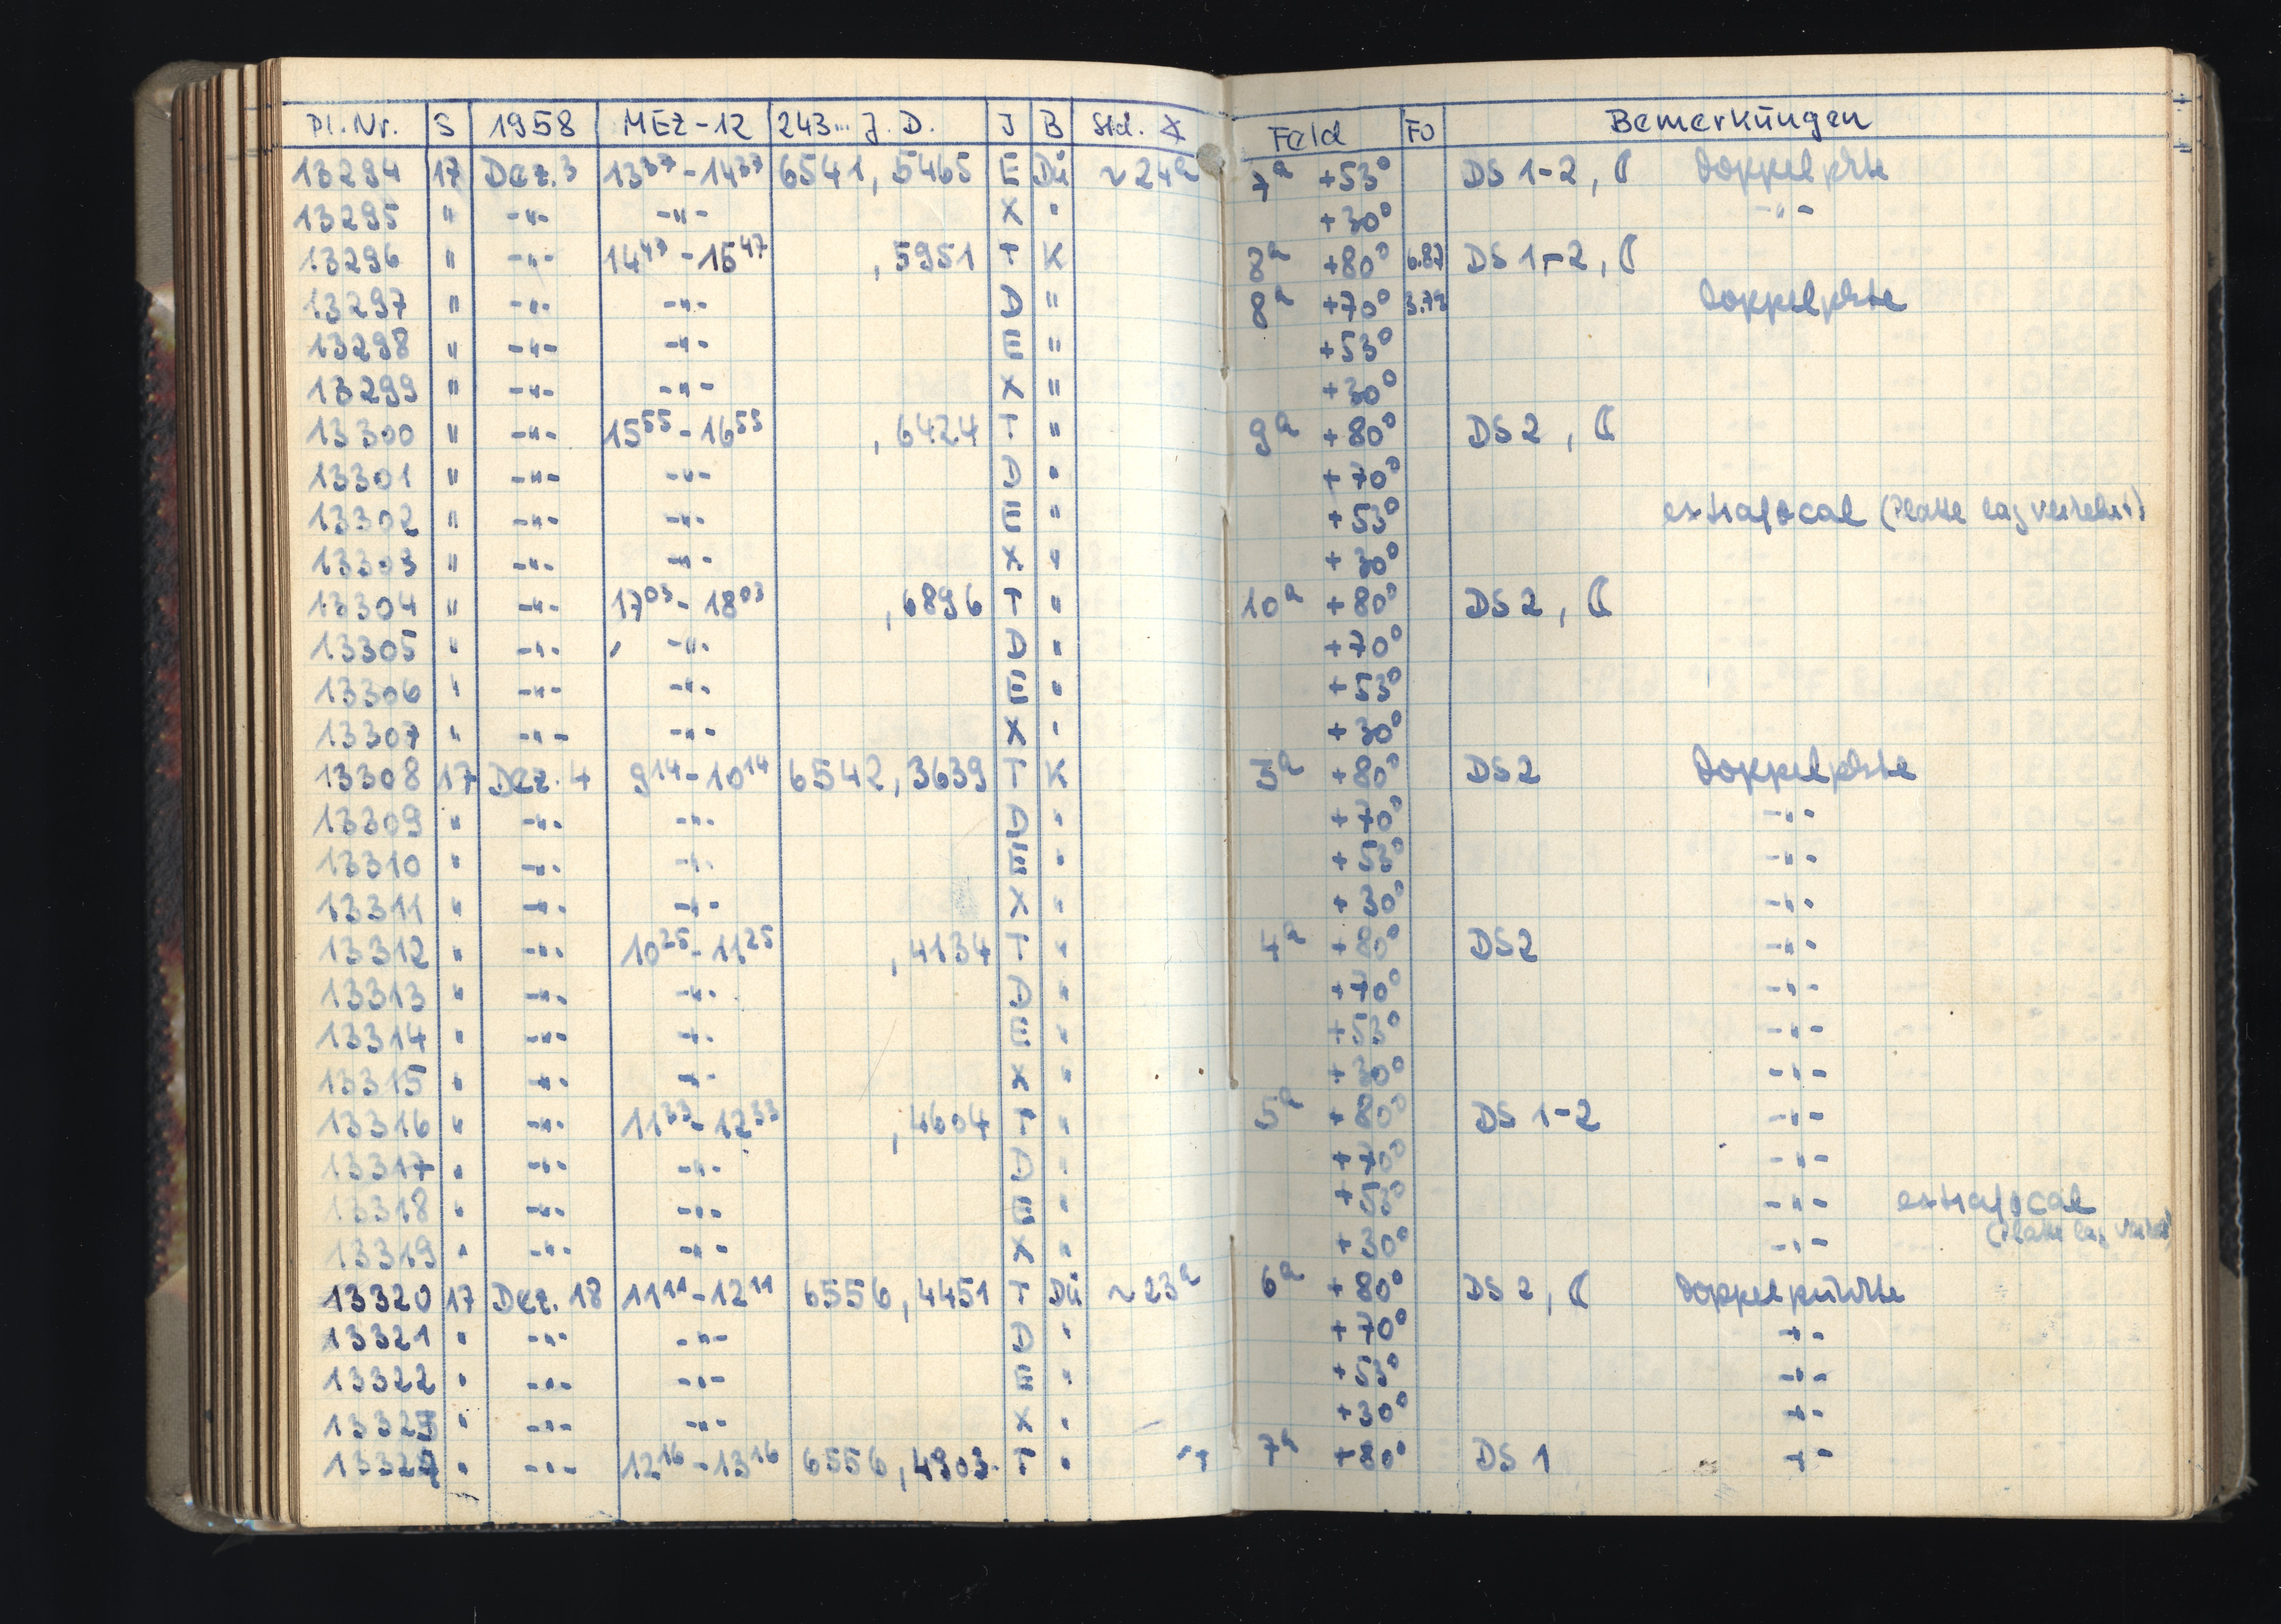 Pl.Nr. S 1958 MEZ-12 243... J.D. J B Std. ∡ Feld Fo Bemerkungen
13294 17 Dez. 3 13³⁷-14³⁷ 6541,5465 E Dü ~24ʰ 7ʰ +53° DS 1-2, ☾ Doppelpkte
13295 " -"- -"- X " +30° -"-
13296 " -"- 14⁴⁷-15⁴⁷ ,5951 T K 8ʰ +80° 6.87 DS 1-2, ☾
13297 " -"- -"- D " 8ʰ +70° Doppelpkte
13298 " -"- -"- E " +53°
13299 " -"- -"- X " +30°
13300 " -"- 15⁵⁵-16⁵⁵ ,6424 T " 9ʰ +80° DS 2, ☾
13301 " -"- -"- D " +70°
13302 " -"- -"- E " +53° extrafocal (Platte lag verkehrt)
13303 " -"- -"- X " +30°
13304 " -"- 17⁰³-18⁰³ ,6896 T " 10ʰ +80° DS 2, ☾
13305 " -"- -"- D " +70°
13306 " -"- -"- E " +53°
13307 " -"- -"- X " +30°
13308 17 Dez. 4 9¹⁴-10¹⁴ 6542,3639 T K 3ʰ +80° DS 2 Doppelpkte
13309 " -"- -"- D " +70° -"-
13310 " -"- -"- E " +53° -"-
13311 " -"- -"- X " +30° -"-
13312 " -"- 10²⁵-11²⁵ ,4134 T " 4ʰ +80° DS 2 -"-
13313 " -"- -"- D " +70° -"-
13314 " -"- -"- E " +53° -"-
13315 " -"- -"- X " +30° -"-
13316 " -"- 11³³-12³³ ,4604 T " 5ʰ +80° DS 1-2 -"-
13317 " -"- -"- D " +70° -"-
13318 " -"- -"- E " +53° -"- extrafocal
(Platte lag
13319 " -"- -"- X " +30° -"-
13320 17 Dez. 18 11¹¹-12¹¹ 6556,4451 T Dü ~23ʰ 6ʰ +80° DS 2, ☾ Doppelpunkte
13321 " -"- -"- D " +70° -"-
13322 " -"- -"- E " +53° -"-
13323 " -"- -"- X " +30° -"-
13324 " -"- 12¹⁶-13¹⁶ 6556,4903 T " 7ʰ +80° DS 1 -"-